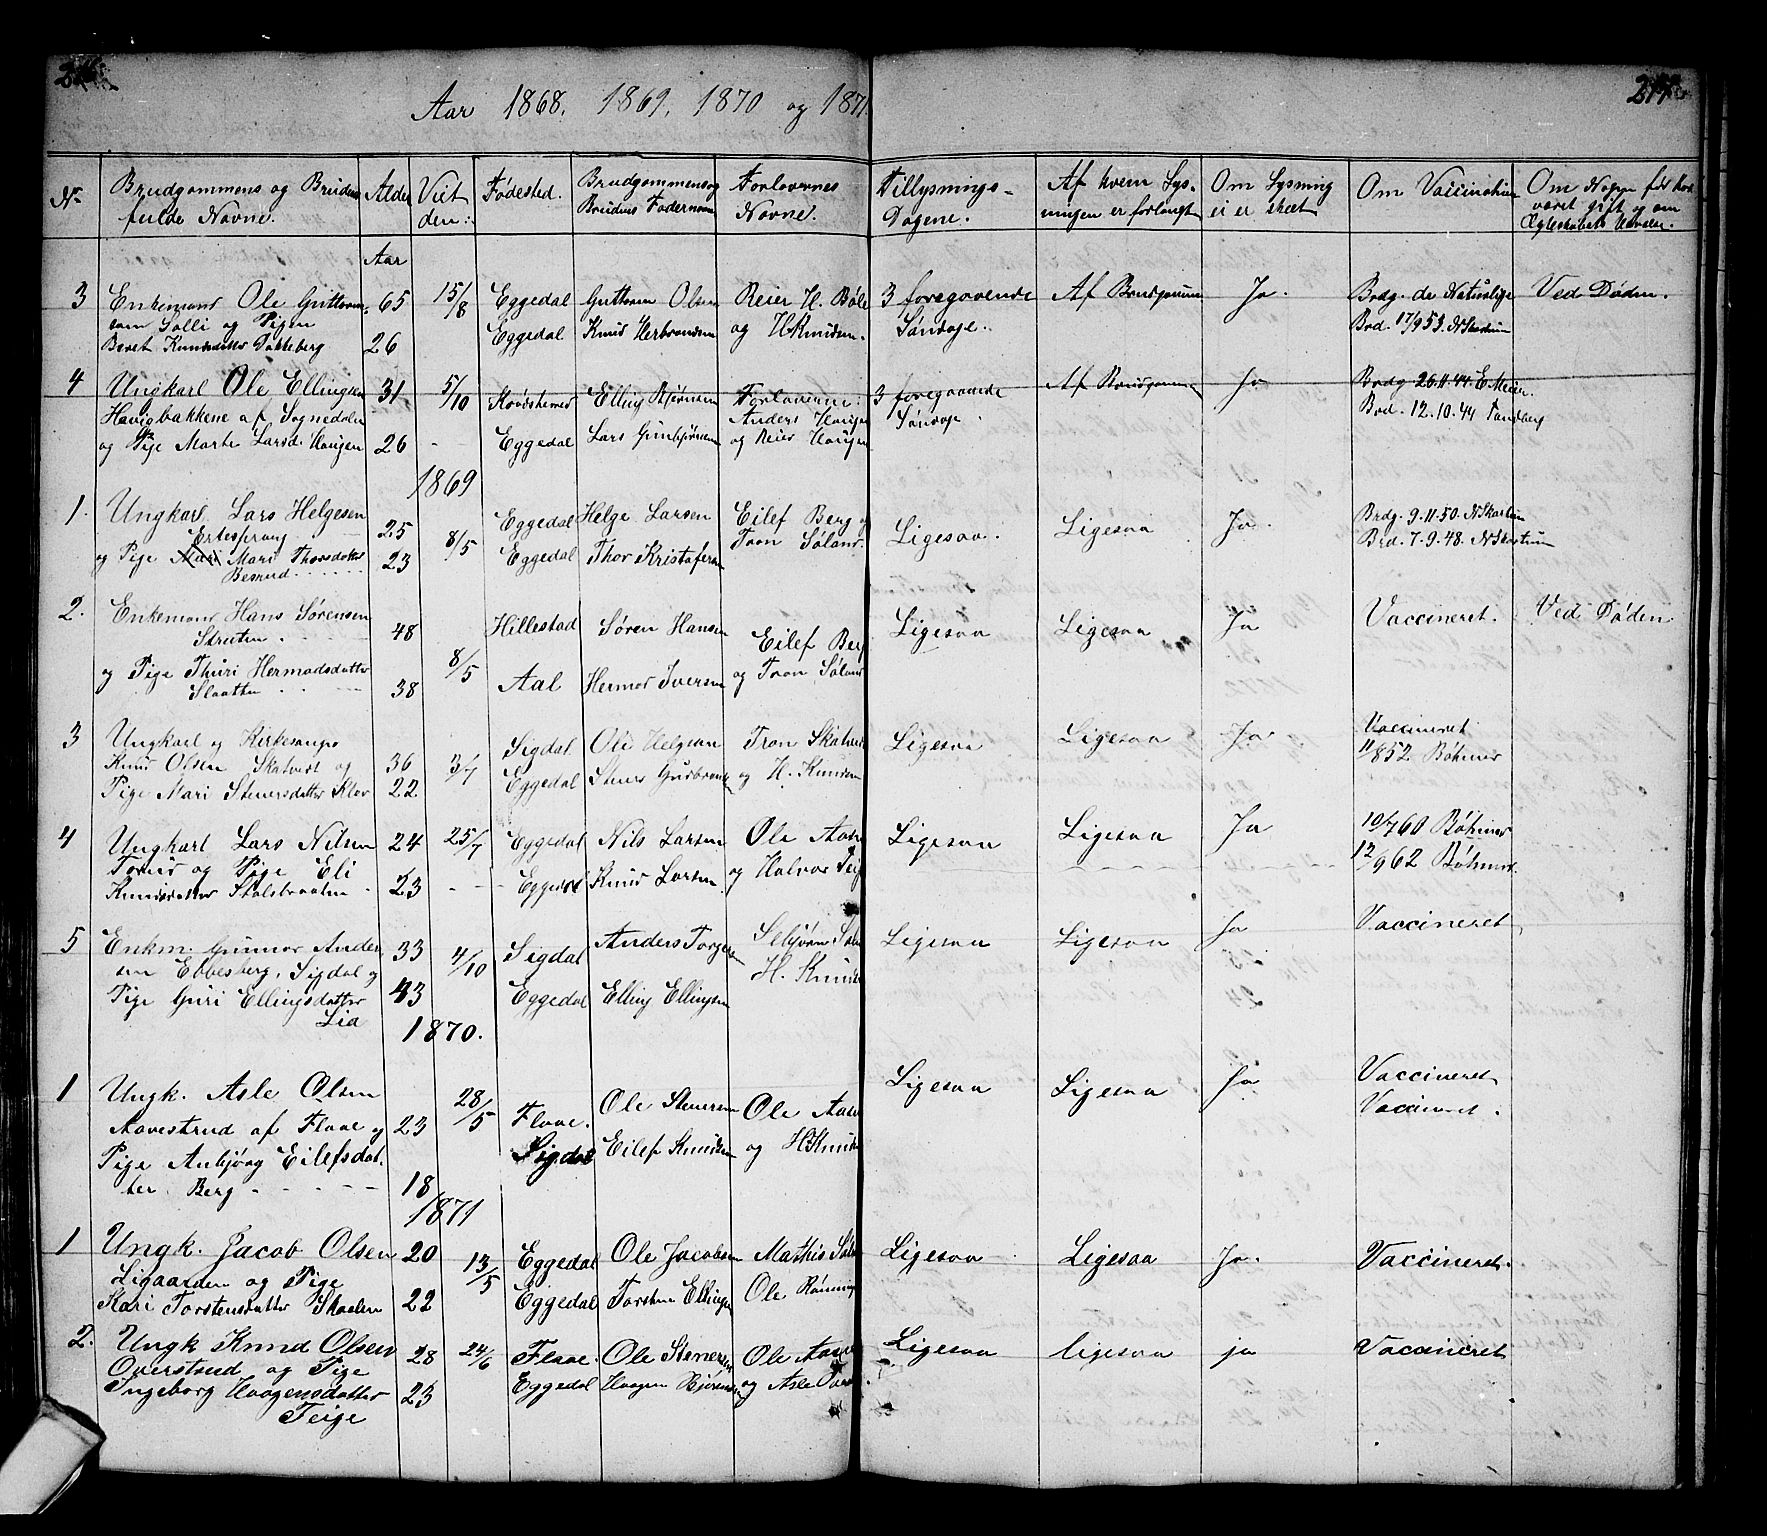 216. 217.
Aar 1868. 1869. 1870 og 1871.
Nr. Brudgommens og Brudens fulde Navne. Alder Viet den: Fødested. Brudgommens og Brudens Fadernavn Forlovernes Navne. Tillysnings-Dagene. Af hvem Lysningen er forlangt Om Lysning ei er skeet Om Vaccination Om Nogen før har været gift og om Ægteskabets Hævelse.
Aar
3 Enkemand Ole Guttorm- 65 15/8 Eggedal Guttorm Olsen Reier H. Bøle 3 foregaaende Af Brudgommen Ja. Brdg. de Naturlige Ved Døden.
sen Golli og Pigen Eggedal Knud Herbrandsen og H. Knudsen. Søndage. Brd. 17/9 53. N Skartum
Beret Knudsdatter Dokkeberg 26
4 Ungkarl Ole Ellingsen 31 5/10 Krødsherred Elling Bjørnsen Forloverne: 3 foregaaende Af Brudgommen Ja Brdg. 26.11.44. E. Meier.
Havigbakkene af Sognedalen Anders Haugen Søndage. Brd. 12.10.44 Sandberg
og Pige Marte Larsd. Haugen 26 Eggedal Lars Gunbjørnsen og Reier Haugen
1869
1. Ungkarl Lars Helgesen 25 8/5 Eggedal Helge Larsen Eilef Berg og Ligesaa. Ligesaa Ja. Brdg. 9.11.50. N Skartum
Ertesprang
og Pige Mari Thorsdatter 23 Eggedal Thor Kristofersen Tron Søland. Brd. 7.9.48. N Skartum
Besrud
2. Enkemand Hans Sørensen 48 Hillestad Søren Hansen Eilef Berg Ligesaa Ligesaa Ja Vaccineret. Ved Døden
Streiten.
og Pige Thuri Hermodsdatter 38 8/5 Aal Hermod Iversen og Tron Søland
Slaatten
3 Ungkarl og Kirkesanger 36 3/7 Sigdal Ole Helgesen Tron Skatvedt Ligesaa Ligesaa Ja. Vaccineret
Knud Olsen Skatvedt og
Pige Mari Steensdatter Klev 22 Eggedal Stener Gudbrands. og H. Knudsen 11/8 52 Bøhmer
4 Ungkarl Lars Nilsen 24 25/7 Eggedal Nils Larsen Ole Aasen Ligesaa Ligesaa Ja 10/7 60 Bøhmer
og Pige Eli
Knudsdatter Stolsbraaten 23 Eggedal Knud Larsen og Halvor Teige 12/9 62 Bøhmer.
5 Enkm. Gunnar Anders- 33 4/10 Sigdal Anders Torgersen Ligesaa Ligesaa Ja Vaccineret
sen Ebbesberg, Sigdal og H. Knudsen
Pige Guri Ellingsdatter 43 Eggedal Elling Ellingsen
Lia
1870.
1 Ungk. Asle Olsen 23 28/5 Flaae. Ole Stenersen Ole Aasen Ligesaa Ligesaa Ja Vaccineret
Aavestrud af Flaae og Vaccineret.
Pige Anbjørg Eilefsdat- 18 Sigdal Eilef Knudsen og H Knudsen
ter Berg
1871
1 Ungk. Jacob Olsen 20 13/5 Eggedal Ole Jacobsen Mathis Søland Ligesaa Ligesaa Ja. Vaccineret.
Ligaarden og Pige
Kari Torstensdatter Skaelen 22 Eggedal Torsten Ellingsen Ole Rønning
2. Ungk Knud Olsen 28 24/6 Flaae. Ole Stenersen Ole Aasen Ligesaa ligesaa ja Vaccineret
Overstrud og Pige
Ingeborg Haagensdatter 23 Eggedal Haagen Bjørnsen og Asle
Teige